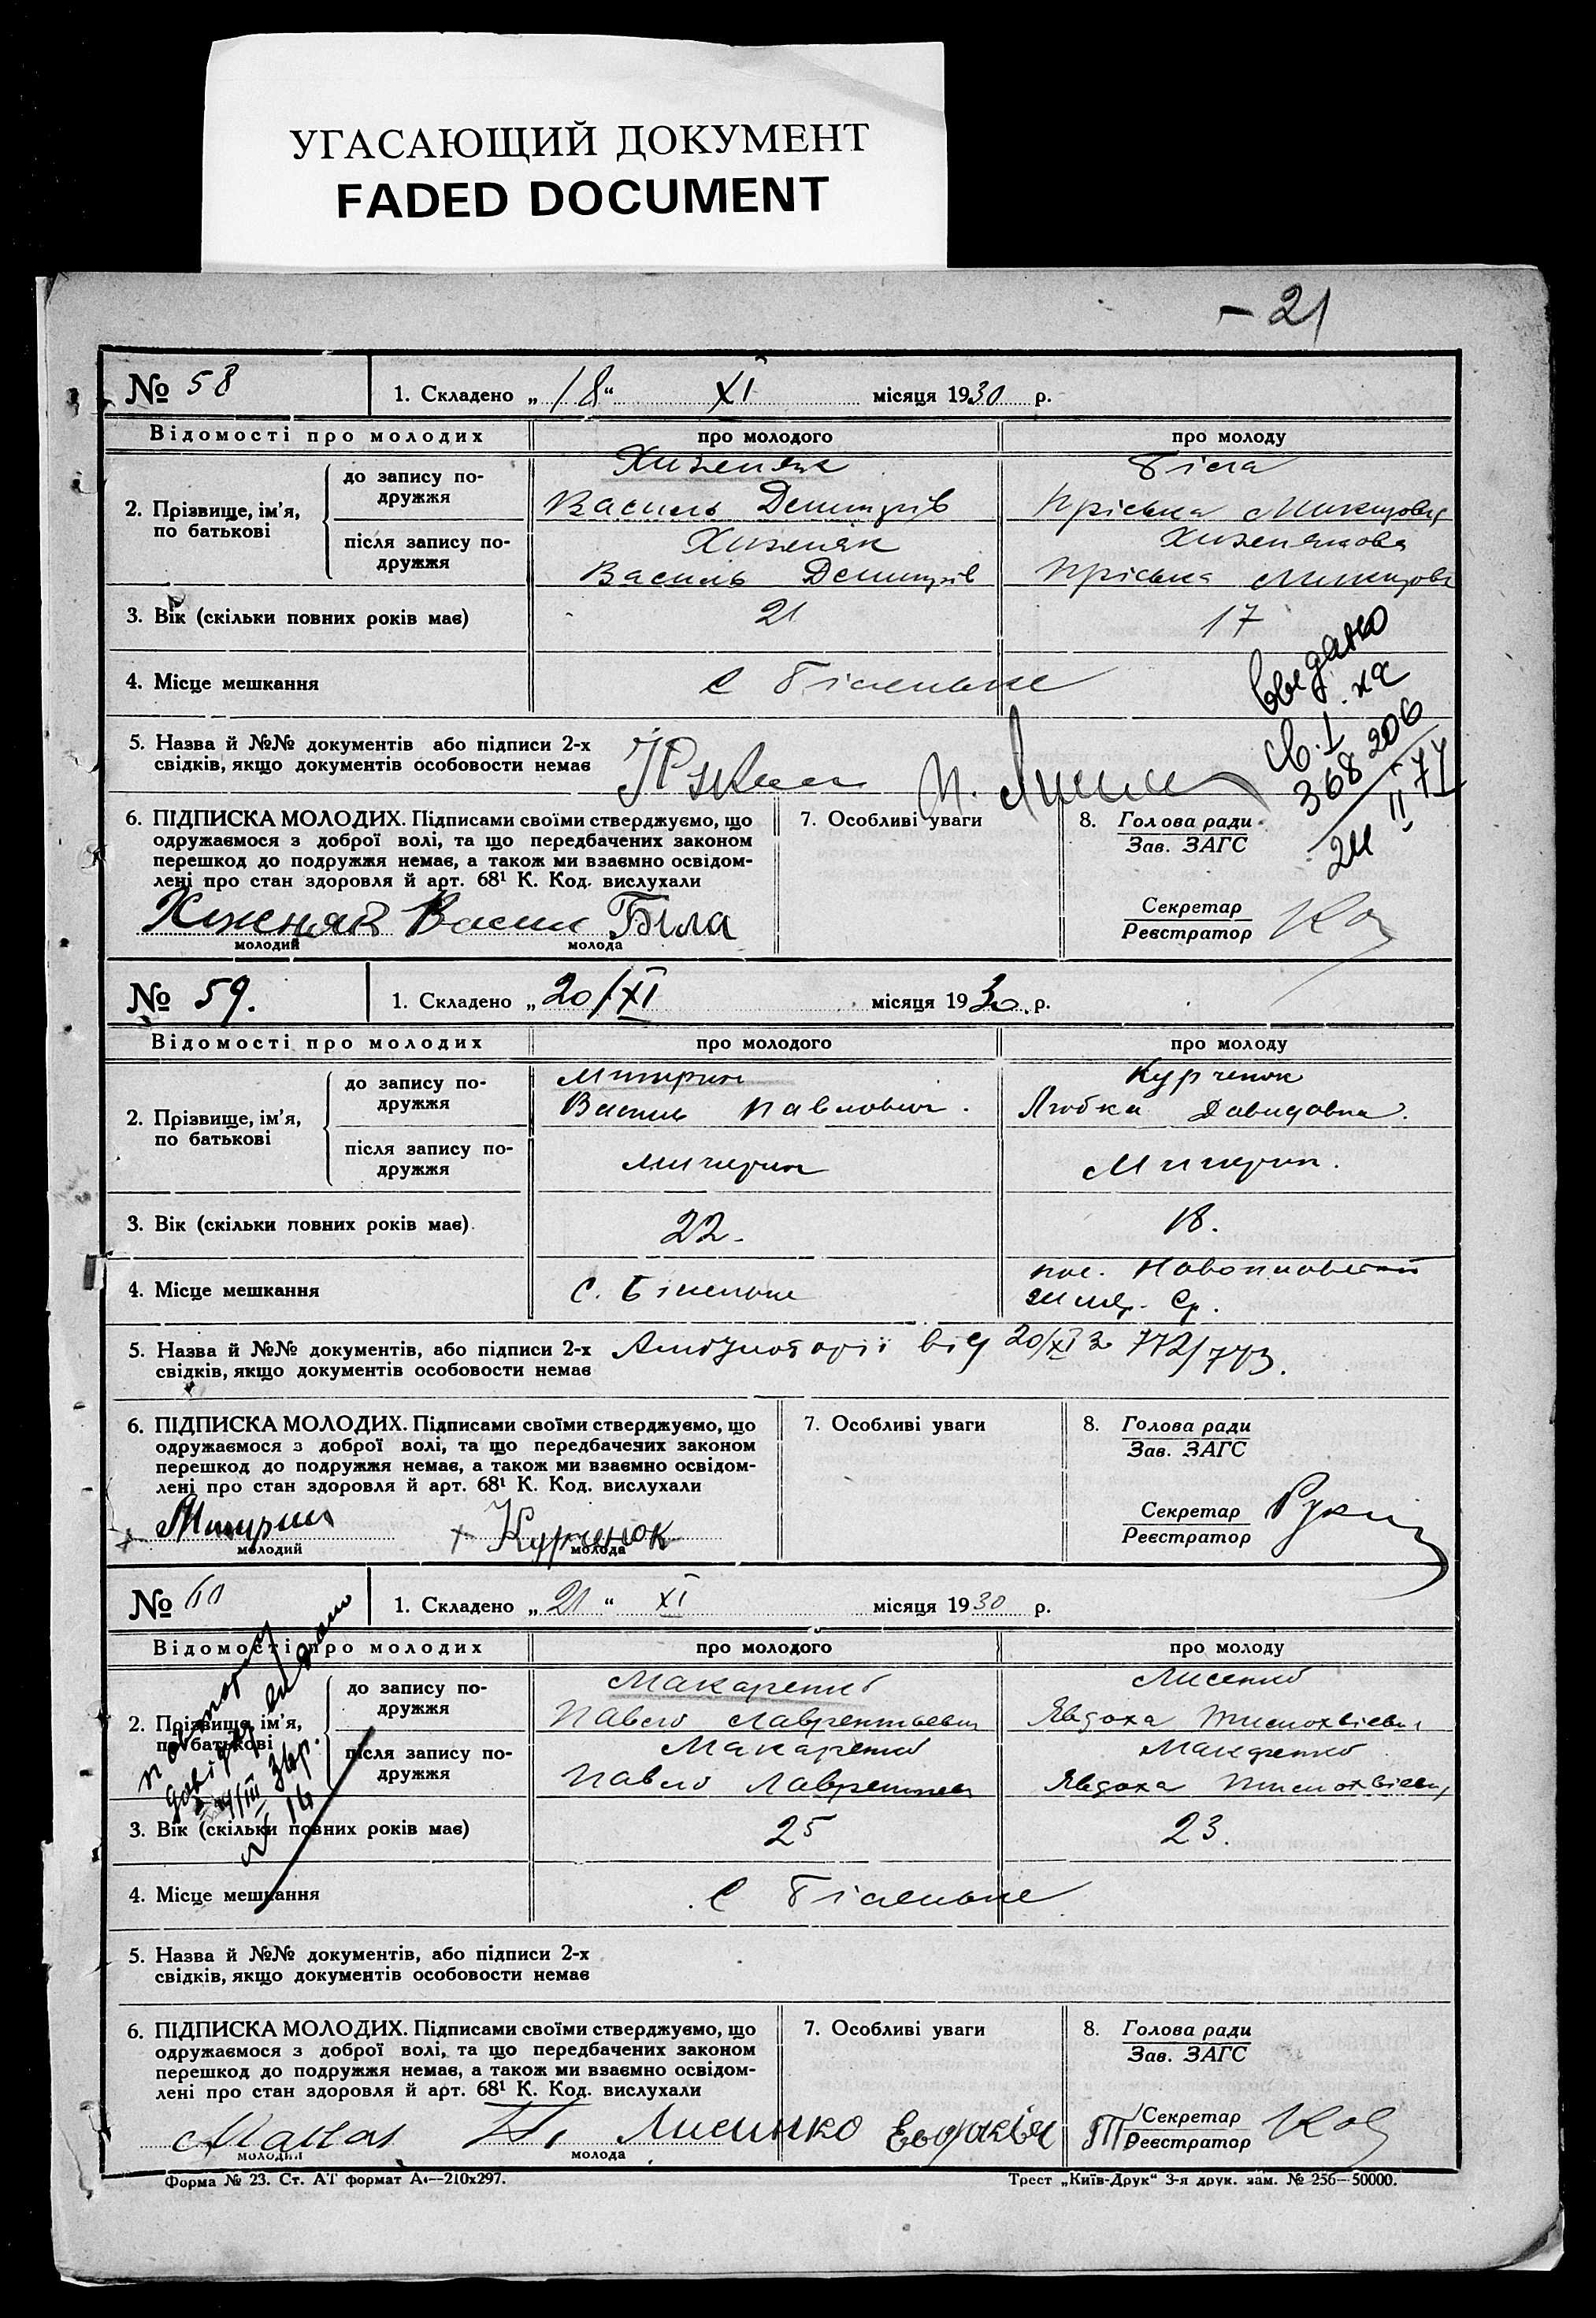 УГАСАЮЩИЙ ДОКУМЕНТ
FADED DOCUMENT
- 21
№ 58
1. Складено „18“ XI місяця 1930 р.
Відомості про молодих
про молодого
про молоду
2. Прізвище, ім'я, по батькові
до запису подружжя
Хиженяк
Василь Дмитрів
Біла
Пріська Микитовна
після запису подружжя
Хиженяк
Василь Дмитрів
Хиженякова
Пріська
3. Вік (скільки повних років має)
21
17
4. Місце мешкання
С Біленьке
видано
св. І
368206
24 II 77
5. Назва й №№ документів або підписи 2-х
свідків, якщо документів особовости немає
6. ПІДПИСКА МОЛОДИХ. Підписами своїми стверджуємо, що
одружаємося з доброї волі, та що передбачених законом
перешкод до подружжя немає, а також ми взаємно освідом-
лені про стан здоровля й арт. 68¹ К. Код. вислухали
Хиженяк Васил Біла
молодий
молода
7. Особливі уваги
8. Голова ради
Зав. ЗАГС
Секретар
Реєстратор
№ 59.
1. Складено „20/XI місяця 1930. р.
Відомості про молодих
про молодого
про молоду
2. Прізвище, ім'я, по батькові
до запису подружжя
Митрин
Василь Павлович.
Курченок
Любка Давидовна.
після запису подружжя
Митрин
Митрин.
3. Вік (скільки повних років має)
22.
18.
4. Місце мешкання
С. Біленьке
5. Назва й №№ документів, або підписи 2-х
свідків, якщо документів особовости немає
Амбулоторії від 20/XI 30 772/773.
6. ПІДПИСКА МОЛОДИХ. Підписами своїми стверджуємо, що
одружаємося з доброї волі, та що передбачених законом
перешкод до подружжя немає, а також ми взаємно освідом-
лені про стан здоровля й арт. 68¹ К. Код. вислухали
х Митрин х Курченок
молодий
молода
7. Особливі уваги
8. Голова ради
Зав. ЗАГС
Секретар
Реєстратор
№ 60
1. Складено „21“ XI місяця 1930 р.
Відомості про молодих
про молодого
про молоду
2. Прізвище, ім'я, по батькові
до запису подружжя
Макаренко
Павло Лаврентьевич
Лисенко
Явдоха Тимохвієвна
після запису подружжя
Макаренко
Павло Лаврентьев
Макаренко
Явдоха Тимохвієвна
3. Вік (скільки повних років має)
25
23.
4. Місце мешкання
С Біленьке
5. Назва й №№ документів, або підписи 2-х
свідків, якщо документів особовости немає
6. ПІДПИСКА МОЛОДИХ. Підписами своїми стверджуємо, що
одружаємося з доброї волі, та що передбачених законом
перешкод до подружжя немає, а також ми взаємно освідом-
лені про стан здоровля й арт. 68¹ К. Код. вислухали
молодий
молода
7. Особливі уваги
8. Голова ради
Зав. ЗАГС
Секретар
Реєстратор
Форма № 23. Ст. АТ формат А4—210х297.
Трест „Київ-Друк“ 3-я друк. зам. № 256—50000.